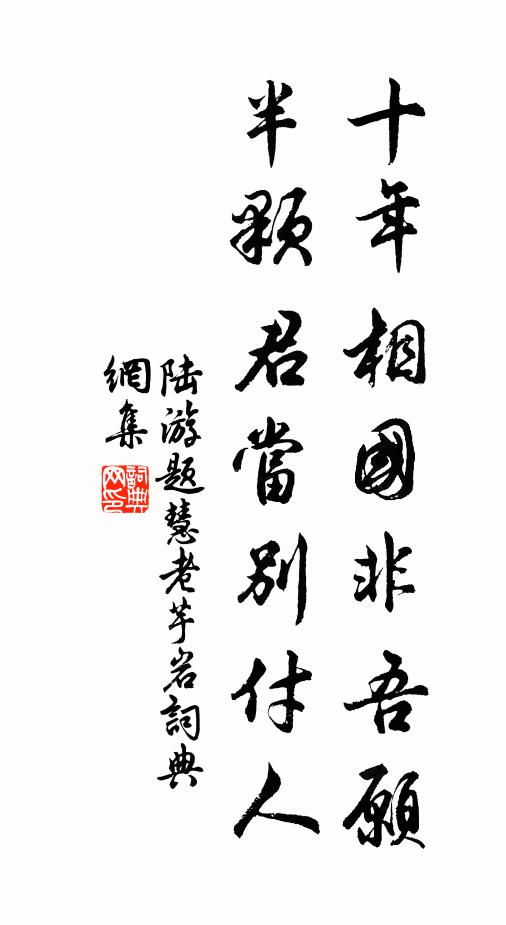 十年相國非吾願
半顆君當別付人
陆游題慧老芋岩詞典
網集
詞典
网印